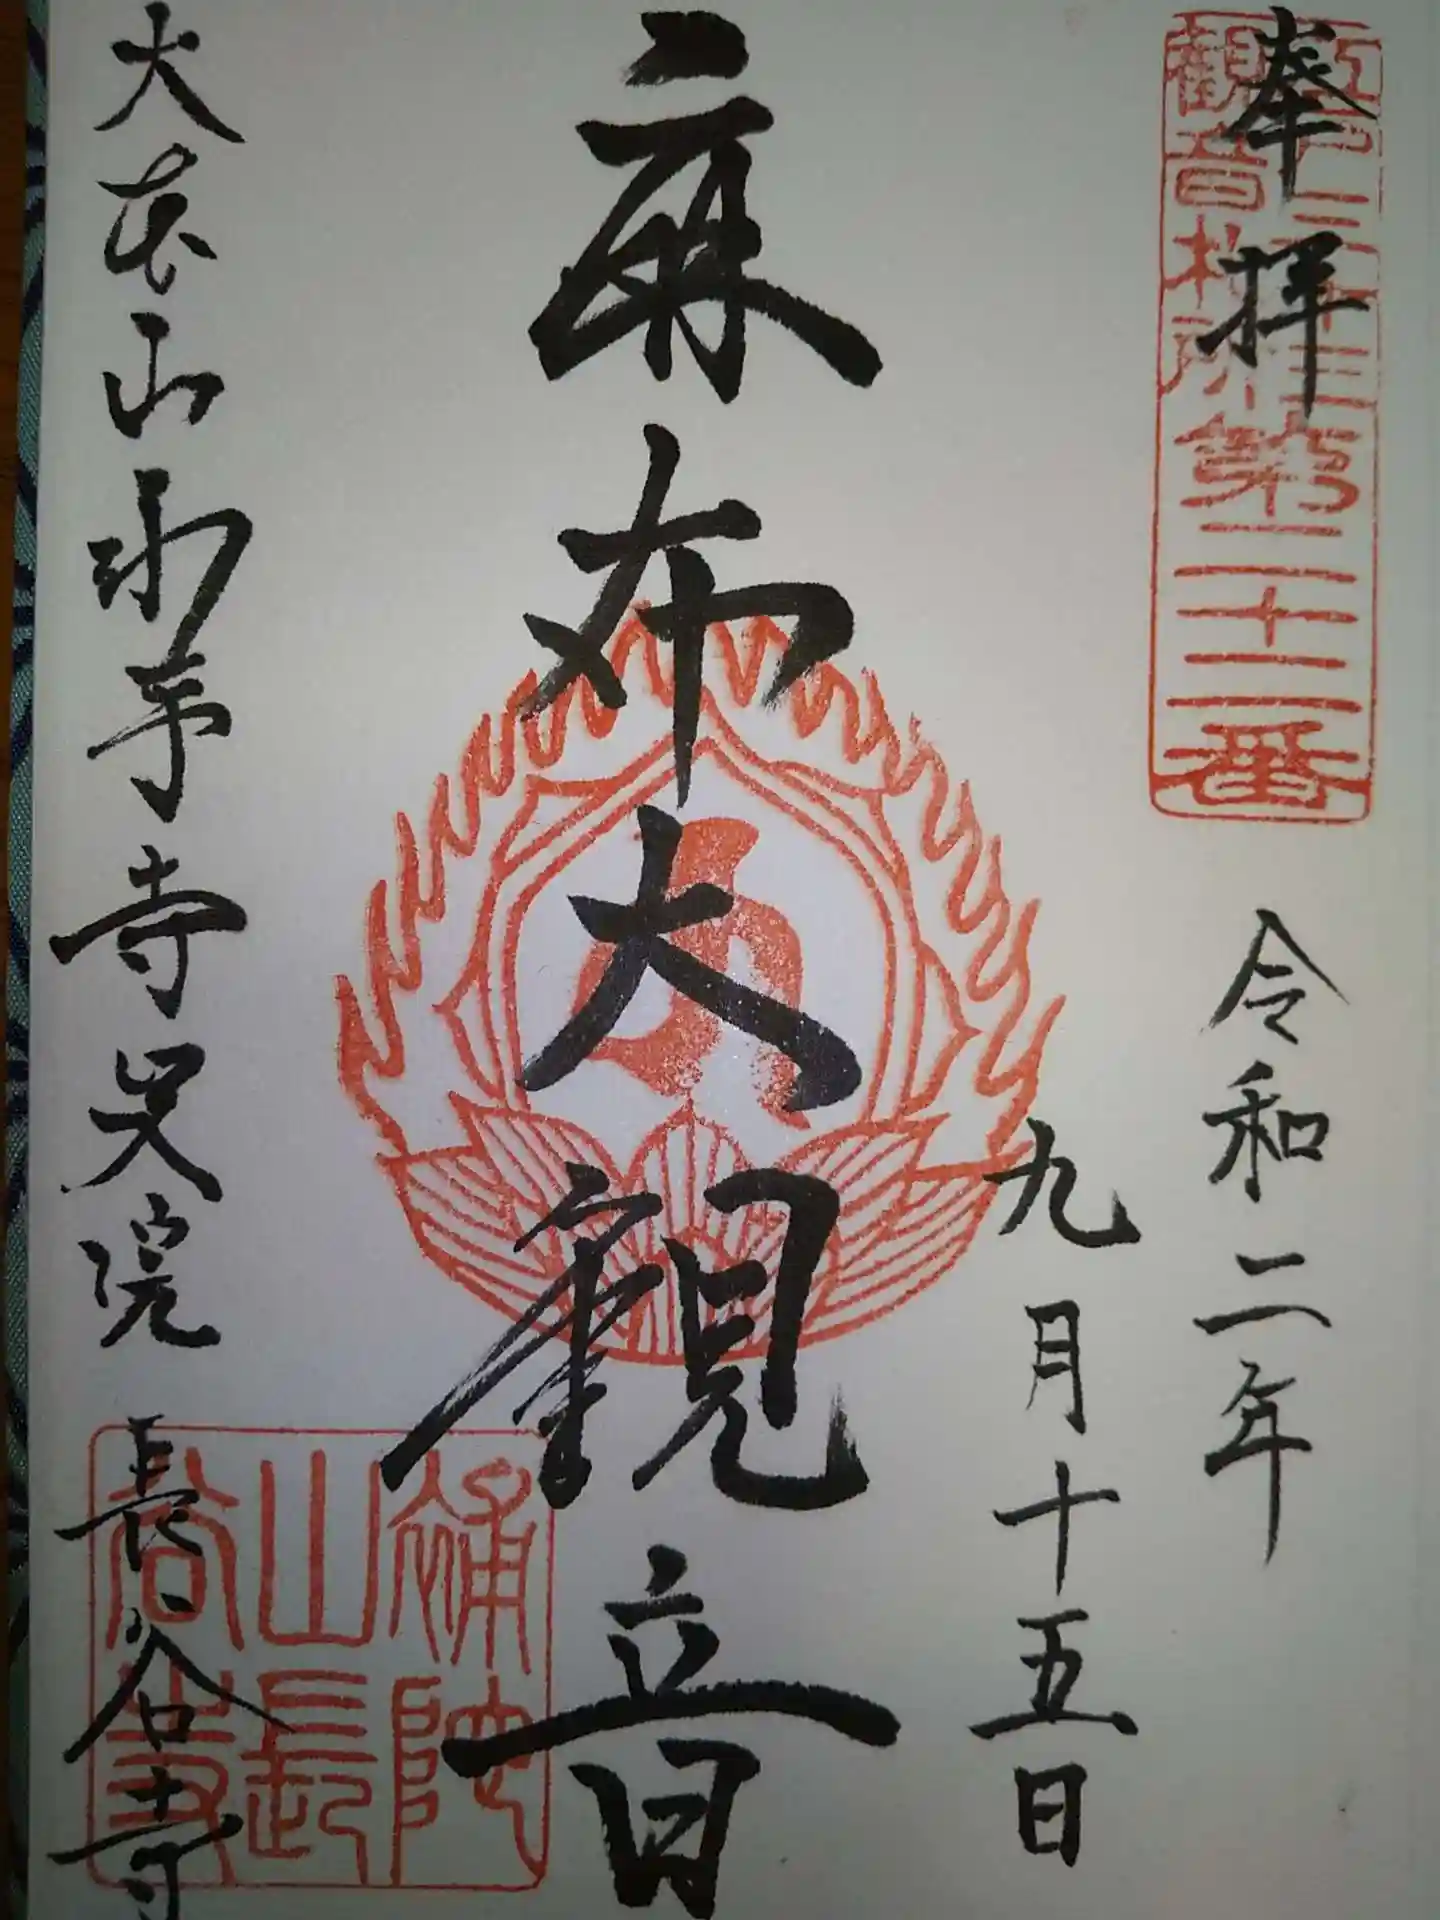 奉拝
江戸三十三
観音札所
第二十二番
令和二年
九月十五日
麻布大観音
大本山永平寺別院 長谷寺
補陀
山長
谷寺